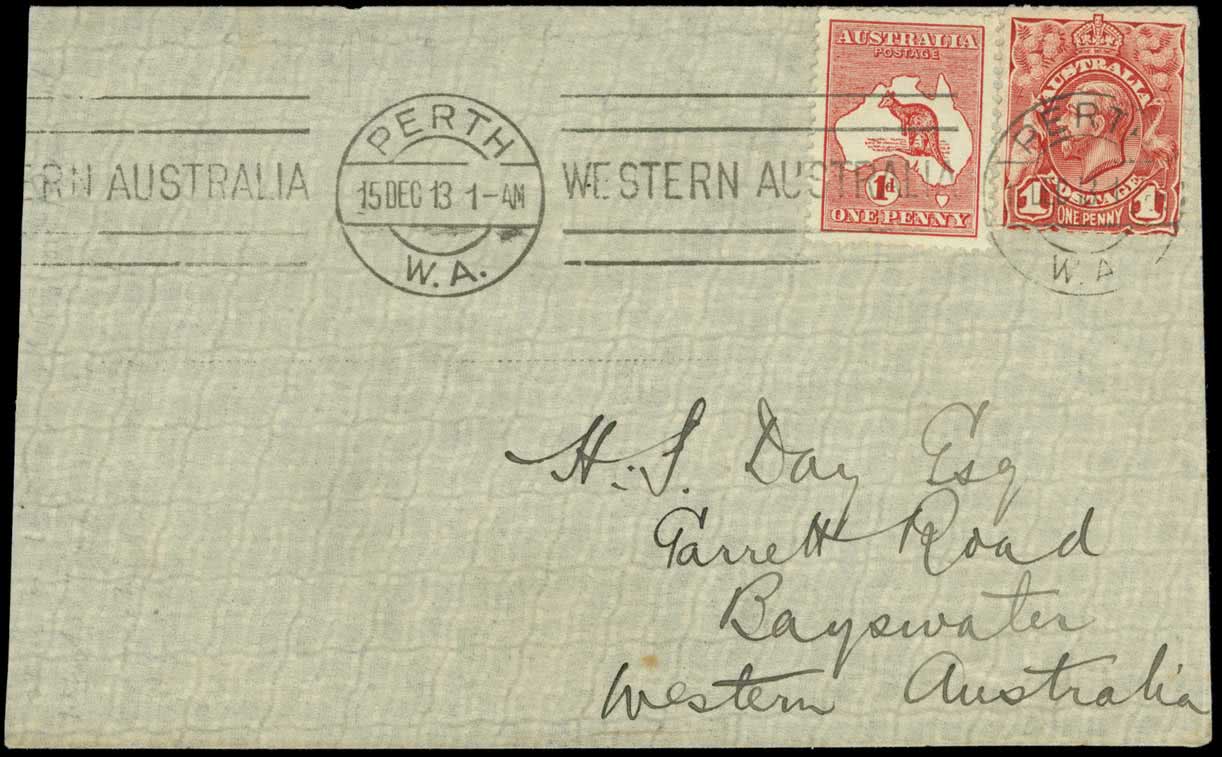 ERN AUSTRALIA
PERTH
15 DEC 13 1-AM
W.A.
WESTERN AUSTRALIA
AUSTRALIA
POSTAGE
1d
ONE PENNY
AUSTRALIA
POSTAGE
1 ONE PENNY 1
PERTH
W.A
H. S. Day Esq
Garrett Road
Bayswater
Western Australia